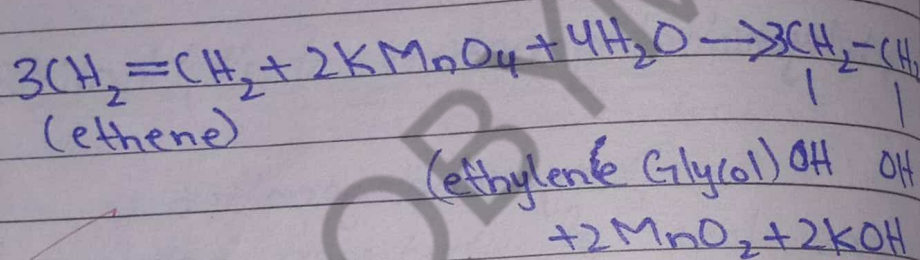 3CH₂=CH₂+2KMnO₄+4H₂O→3CH₂-CH₂
(ethene)
(ethylene Glycol) OH OH
+2MnO₂+2KOH
OBYM